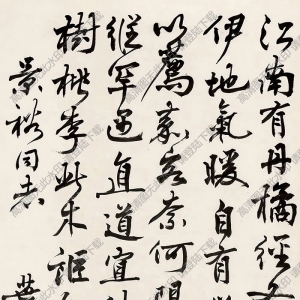 江南有丹橘經
伊地氣暖自有
以薦嘉客奈何阻
罕遇直道宜
樹桃李此木詎
景裕同志